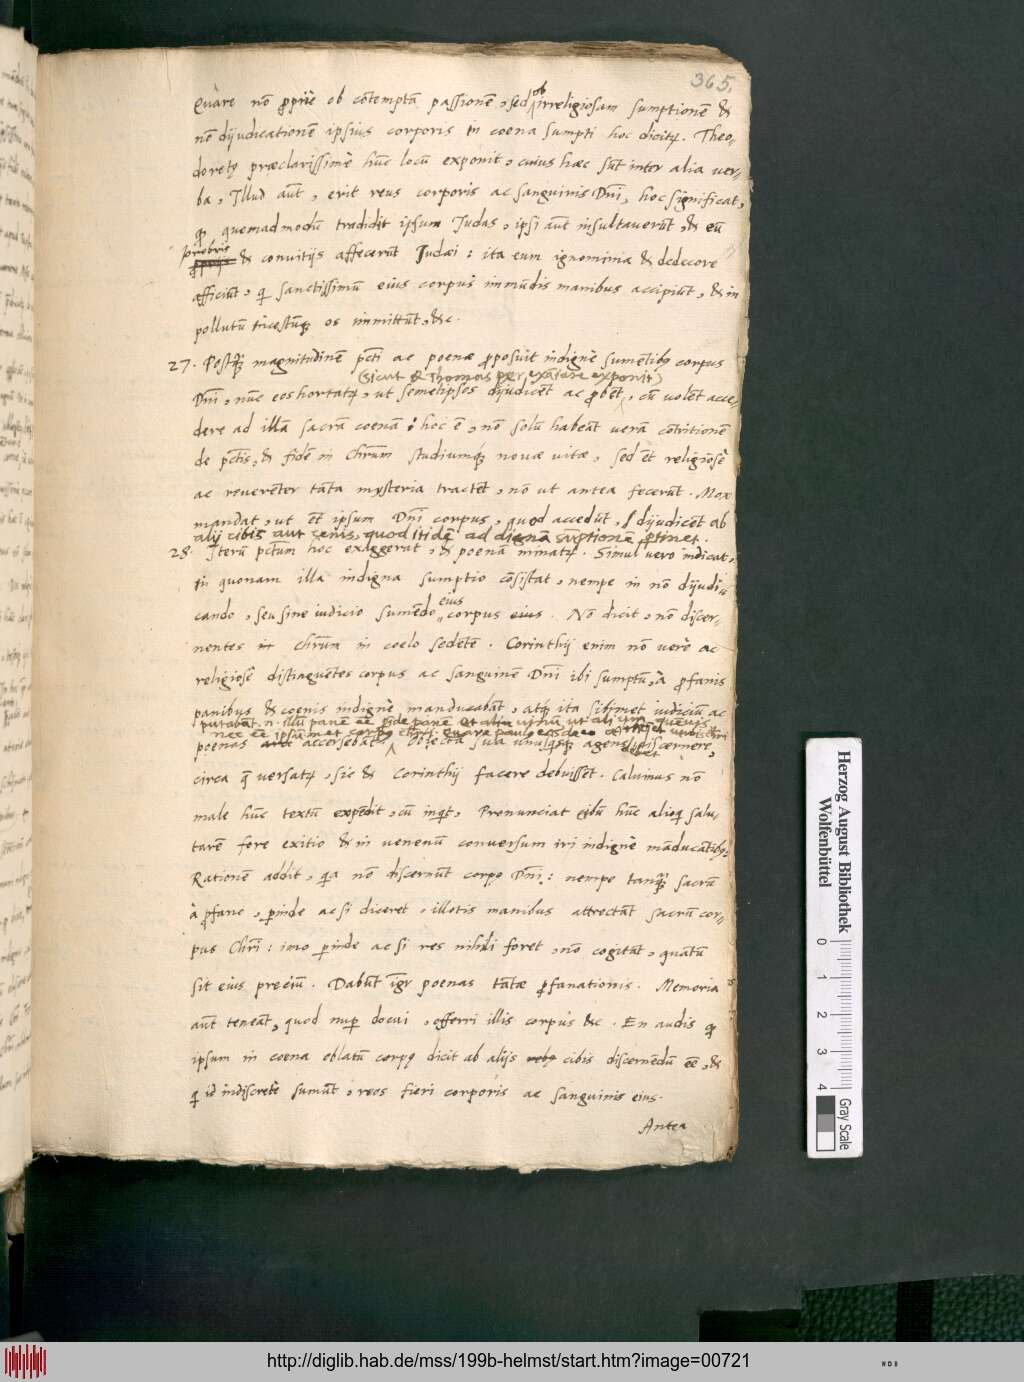 365.
Quare nō propriè ob cōtemptā passionē, sed ob irreligiosam sumptionē &
nō dijudicationē ipsius corporis in coena sumpti hoc dicitur. Theo-
doretus praeclarissimè hūc locū exponit, cuius haec sūt inter alia ver-
ba, Illud aūt, erit reus corporis ac sanguinis Dñi, hoc significat,
quemadmodū tradidit ipsum Judas, ipsi aūt insultaverūt, & eū
probris
& convitijs affecerūt Judaei: ita eum ignominia & dedecore
afficiūt, qui sanctissimū eius corpus immūdis manibus accipiūt, & in
pollutū incestūque os immittūt, &c.
27. Postquā magnitudinē pcti ac poenae proposuit indignè sumētibus corpus
(sicut & Thomas per exāinare exponit)
Dñi, nūc eos hortatur, ut semetipsos dijudicēt ac probēt, cū volēt acce-
dere ad illā sacrā coenā: hoc ē, nō solū habeāt verā cōtritionē
de pctis, & fidē in Chrūm studiumque novae vitae, sed ēt religiosè
ac reverēter tāta mysteria tractēt, nō ut antea fecerūt. Mox
mandat, ut ēt ipsum Dñi corpus, quod accedūt, dijudicēt ab
alijs cibis aut cenis, quod itidē ad dignā sūptionē ptinet.
28. Iterū pctum hoc exaggerat, & poenā minatur. Simul vero indicat,
in quonam illa indigna sumptio cōsistat, nempe in nō dijudi-
cando, seu sine iudicio sumēdo eius corpus eius. Nō dicit, nō discer-
nentes in Chrūm in coelo sedētē. Corinthij enim nō verè ac
religiosè distinguētes corpus ac sanguinē Dñi ibi sumptū, à profanis
panibus & coenis indignè manducabāt, atque ita sibimet iudiciū ac
putabāt n. illū panē eē pinde panē et aliū vinū ut aliū quēvis
nec eē ipsummet corpus Christi. Quare paulo eos deo
poenas accersebāt. Objecta sua unusquisque agens discernere,
debet
circa quae versatur, sic & Corinthij facere debuissēt. Calvinus nō
male hūc textū expēdit, cū inquit, Pronunciat cibū hūc alioqui salu-
tarē fore exitio & in venenū conversum iri indignè māducātibus.
Rationē addit, quia nō discernūt corpus Dñi: nempe tanquā sacrū
à profano, perinde ac si diceret, illotis manibus attrectāt sacrū cor-
pus Chri: imo perinde ac si res nihili foret, nō cogitāt, quātū
sit eius preciū. Dabūt igitur poenas tātae profanationis. Memoria
aūt teneāt, quod nuper docui, offerri illis corpus &c. En audis quod
ipsum in coena oblatū corpus dicit ab alijs cibis discernēdū eē, &
qui id indiscretè sumūt, reos fieri corporis ac sanguinis eius.
Antea
Herzog August Bibliothek
Wolfenbüttel
0 1 2 3 4
Gray Scale
http://diglib.hab.de/mss/199b-helmst/start.htm?image=00721